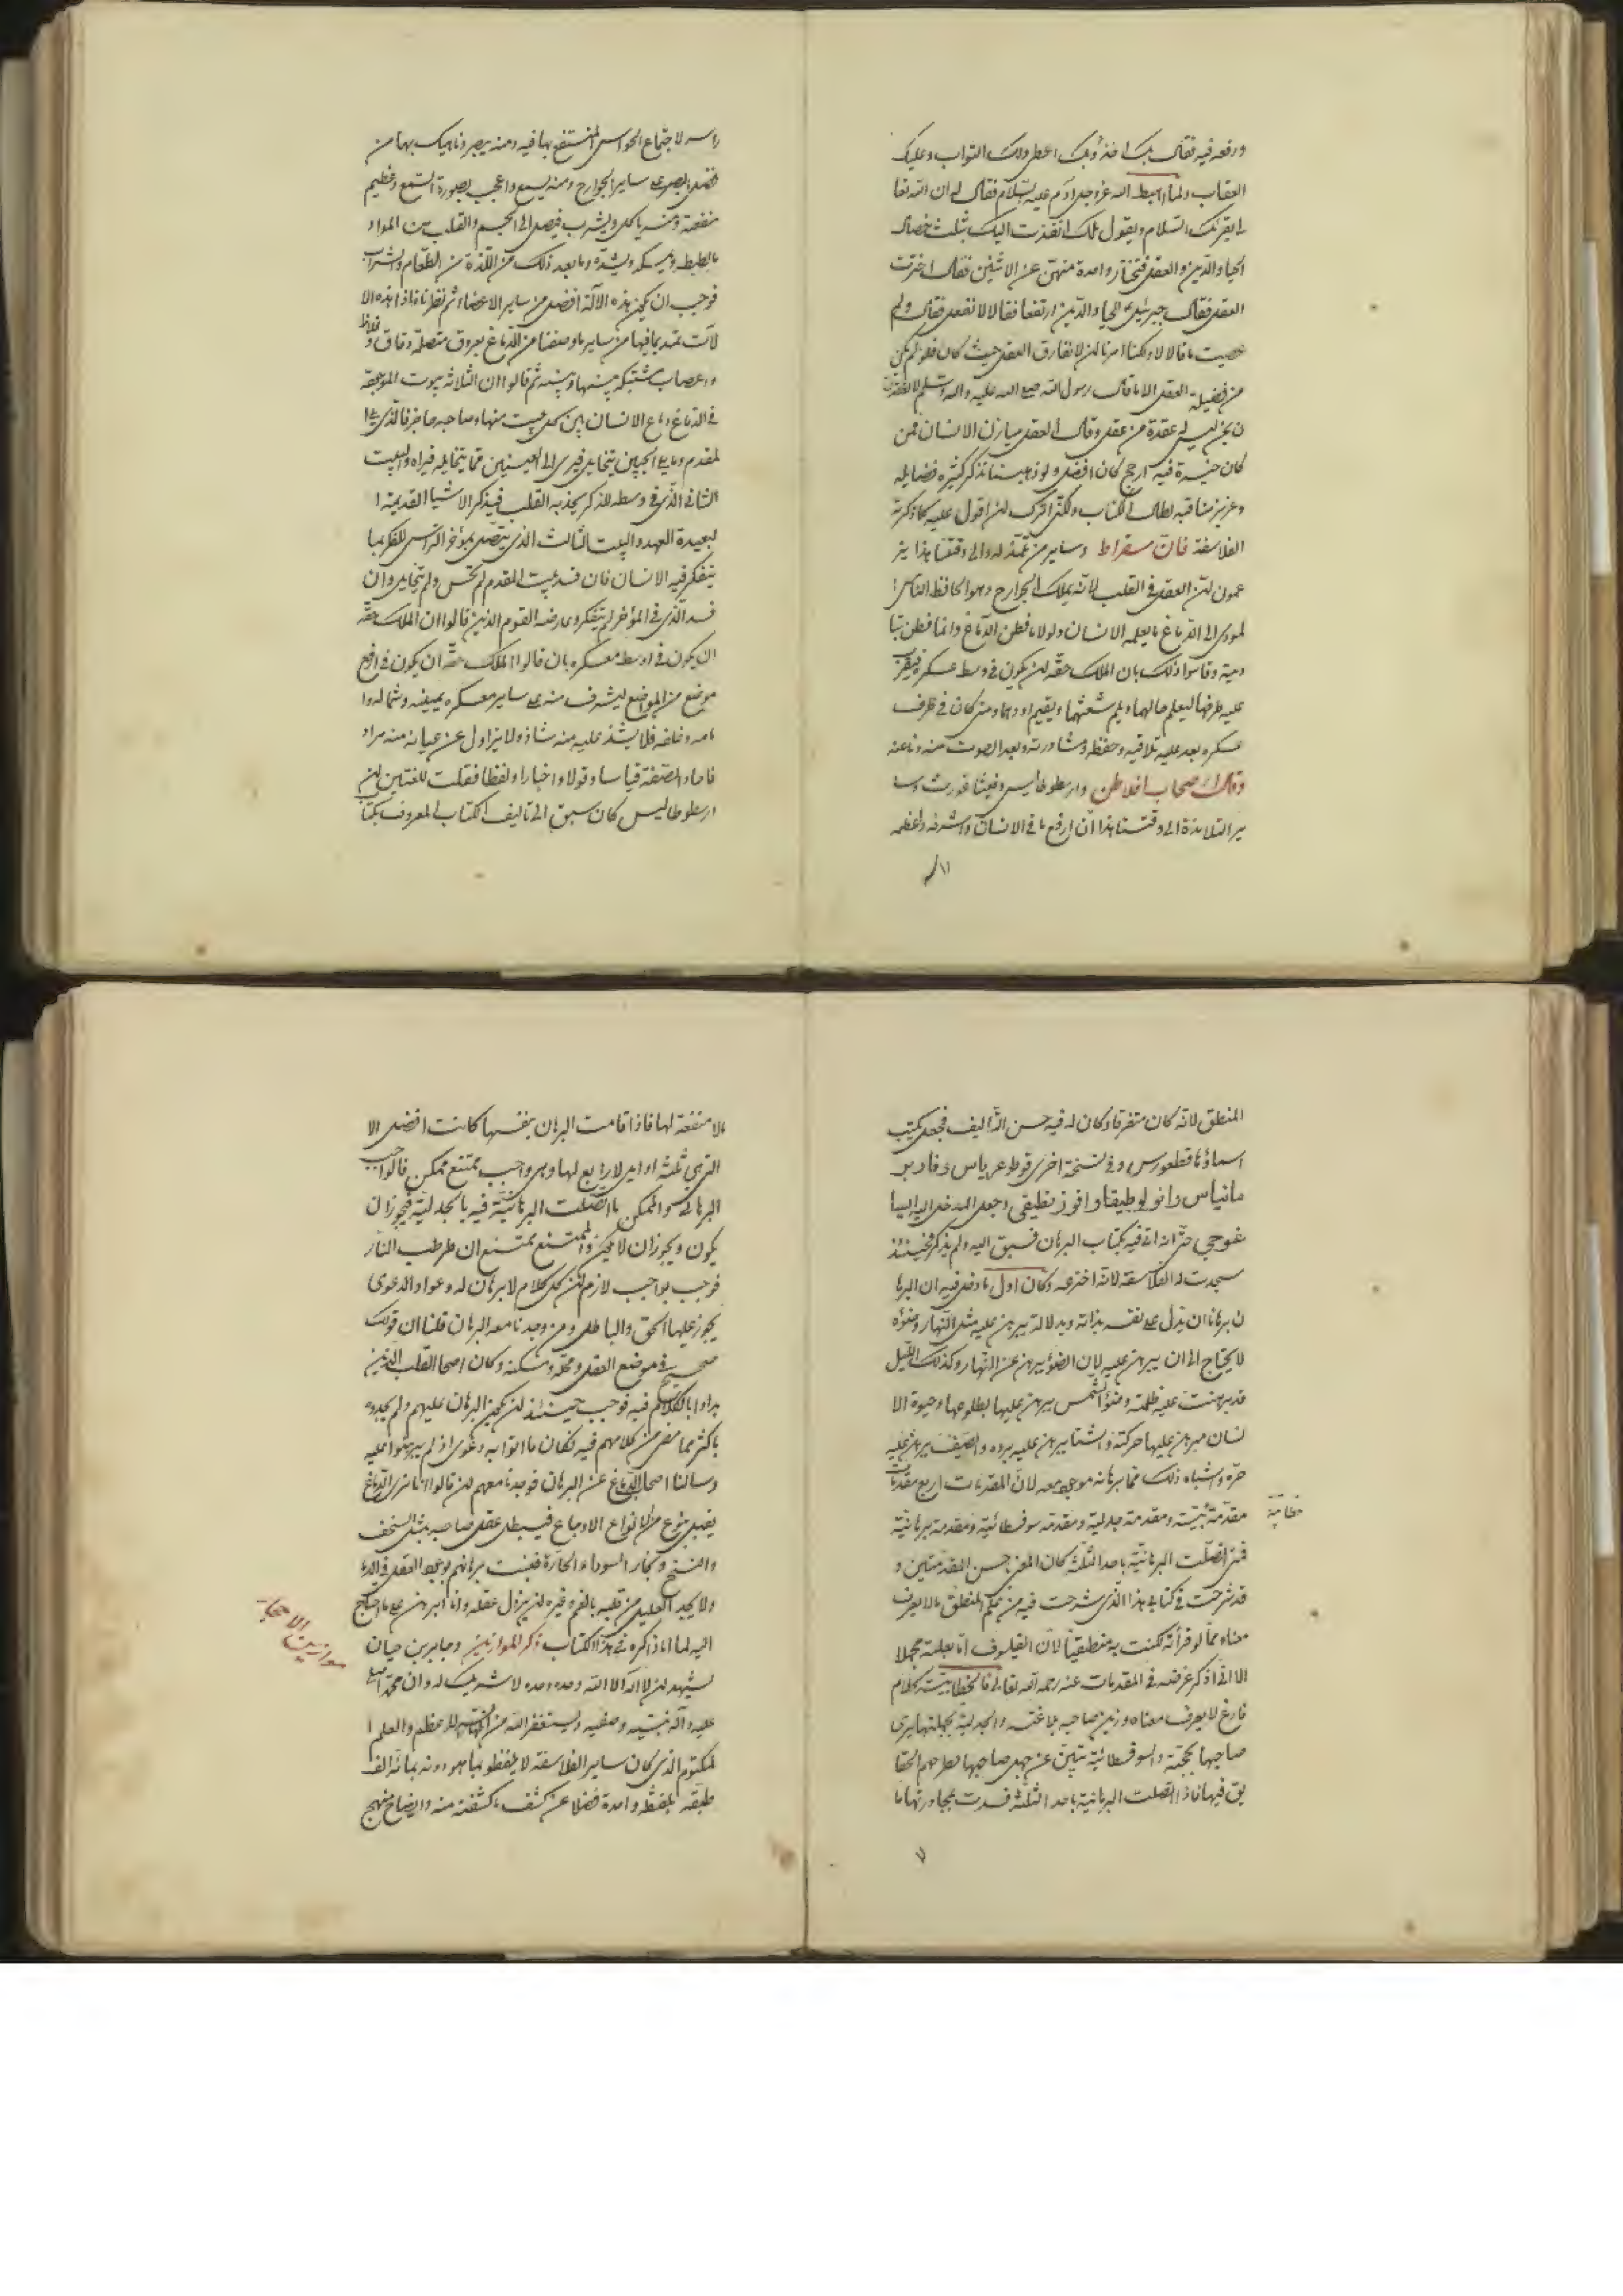 ورفعه فيه فقال بك اخذ وبك اعطى ولك الثواب وعليك
العقاب ولما اهبط الله عزوجل ادم عليه السلام فقال له ان الله تعا
لى يقرئك السلام ويقول لك انفذت اليك بثلث خصال
الحيا والدين والعقل فتختار واحدة منهن عن الاثنين فقال اخترت
العقل فقال جبرئيل للحيا والدين ارتفعا فقالا لا نفعل فقال ولم
عصيت ما قالا لا ولكنا امرنا لن لا نفارق العقل حيث كان فلو لم يكن
من فضيلة العقل الا ما قال رسول الله صلى الله عليه واله وسلم
عقدة من عقل وقال العقل ميازن الانسان فمن
كان فيه ارجح كان افضل ولو ذهبنا نذكر كثيرة فضايله
وعزيز مناقبه لطال الكتاب ولكنى لن اقول عليه كما ذكرته
الفلاسفة فان سقراط وساير من والى وقتنا هذا يز
عمون لن العقل فى القلب لانه يملك الجوارح وهو الحافظ
لمودى الى الدماغ ما يعلمه الانسان ولولا ما فطن الدماغ وانما فطن بتا
دية وقاسوا ذلك بان الملك حقه لن يكون فى وسط عسكره
عليه طرفها ليعلم حالهما ويلم شعثهما ويقيم اودهما ومتى كان فى طرف
عسكره بعد عليه تلاقيه وحفظه ومشاورته وبعد الصوت منه وناعنه
وقال اصحاب افلاطن وارسطوطاليس وفيثاغورث وسا
ير التلامذة الى وقتنا هذا ان ارفع ما فى الانسان واشرفه واعظمه
راسه لاجتماع الحواس المنتفع بها فيه ومنه يبصر وناهيك بها من
فضل البصر على ساير الجوارح ومنه يسمع واعجب بصورة السمع وعظيم
منفعته ومنه ياكل ويشرب فيصل الى الجسم والقلب من المواد
ما يضبطه ويمسكه ويشده وما بعد ذلك من اللذة من الطعام والشراب
فوجب ان يكون هذه الآلة افضل من ساير الاعضاء ثم نظرنا فاذا هذه الا
لات تمتد بما فيها من ساير ما وصفنا من الدماغ بعروق متصلة دقاق وغلاظ
واعصاب مشتبكة بينها وبينه ثم قالوا ان الثلاثة بيوت
فى الدماغ دماغ الانسان بين كل بيت منها وصاحبه حاجز فالذى فى ا
لمقدم وما يلى الجبين يتخايل فيرى الى العينين فما يتخايله فيراه والبيت
الثانى الذى فى وسطه للذكر يجذبه القلب فيذكر الاشيا القديمة ا
لبعيدة العهد والبيت الثالث الذى يتصل بمؤخر الراس للفكر بما
يتفكر فيه الانسان فان فسد بيت المقدم لم يحس ولم يتخايل وان
فسد الذى فى المؤخر لم يتفكر وعارضه القوم الذين قالوا ان الملك حقه
ان يكون فى اوسط معسكره بان قالوا الملك حقه ان يكون فى ارفع
موضع من المواضع ليشرف منه على ساير معسكره يمينه وشماله وا
مامه وخلفه فلا يشذ عليه منه شاذ ولا يزاول عن عيانه منه مراد
قياسا وقولا واخبارا ولفظا فقلت للفئتين لن
ارسطوطاليس كان سبق الى تاليف الكتاب المعروف بكتا
المنطق لانه كان متفرقا وكان له فيه حسن التاليف فجعل كتب
اسماؤها قطعورس وفى نسخة اخرى قوطوعرياس وفادير
مانياس وانولوطيقا وافوزنطيقى وجعل المدخل اليه ايسا
غوجى حتى انه اتى فيه بكتاب البرهان فسبق اليه ولم يذكر فحينئذ
سجدت له الفلاسفة لانه اخترعه وكان اول ما وصل فيه ان البرها
ن برهانان يدل على نفسه بذاته وبدلالة يبرهن عليه مثل النهار وضؤه
لا يحتاج الى ان يبرهن عليه لان الضؤ يبرهن عن النهار وكذلك الليل
قد برهنت عليه ظلمته وضؤ الشمس يبرهن عليها بطلوعها وحيوة الا
نسان مبرهن عليها حركته والشتا يبرهن عليه برده والصيف يبرهن عليه
حره واشباه ذلك مما برهانه موجود معه لان المقدمات اربع مقدمات
خطابية
مقدمة بينة ومقدمة جدلية ومقدمة سوفسطائية ومقدمة برهانية
فمتى اتصلت البرهانية باحد الثلثة كان المعنى جنس المقدمتين و
قد شرحت فى كتابى هذا الذى شرحت فيه من حكم المنطق ما لا يعرف
معناه مما لو قرأته لكنت به منطقيا لان الفيلسوف اتا بعلمة مجملا
الا انى اذكر غرضه فى المقدمات عنه رحمه الله تعالى فالخطابية كلام
فارغ لا يعرف معناه وزين صاحبه بلاغته والجدلية بجملتها يرى
صاحبها بحجته والسوفسطائية تبين عن جهل صاحبها بطرحه الحقا
يق فيها فاذا اتصلت البرهانية باحد الثلثة فسدت بمجاورتها ما
٧
لا منفعة لها فاذا قامت البرهان بنفسها كانت افضل الا
التى هى ثلثة اوايل لا رابع لها وهى واجب ممتنع ممكن قالوا جب
البرهانى سوا الممكن ما اتصلت البرهانية فيه بالجدلية فيجوز ان
يكون ويجوز ان لا يكون والممتنع يمتنع ان طرطب النار
فوجب بواجب لازم لن كل كلام لا برهان له دعوا والدعوى
يجوز عليها الحق والباطل ومن وجدنا معه البرهان قلنا ان قولك
صحيح فى موضع العقل ومحله ومسكنه وكان اصحا القلب الذين
بداوا بالكلام فيه فوجب حينئذ لن يكون البرهان عليهم ولم يجدوه
باكثر مما مضى من كلامهم فيه فكان ما اتوا به دعوى اذ لم يبرهنوا عليه
وسالنا اصحا الدماغ عن البرهان فوجدنا معهم لن قالوا انا نرى الدماغ
يفعل بنوع من انواع الاوجاع فيبطل عقل صاحبه مثل السخف
وبخار السوداء الحارة فثبت برهانهم بوجود العقل فى الدما
ولا يجد العليل من قلبه بالغم وغيره لن يزول عقله وانا ابرهن على ما احتاج
اليه لما انا ذاكره فى هذا الكتاب ذكر الموازين وجابر بن حيان
موازين الاحجار
يشهد لن لا اله الا الله وحده وحده لا شريك له وان محمدا صلى
عليه وآله نبيه وصفيه ويستغفر الله من العظم والعلم ا
لمكتوم الذى كان ساير الفلاسفة لا يلفظو بما هو دونه بمائة الف
طبقة بلفظه واحدة فضلا عن كشف ما كشفته منه وايضاح منهج